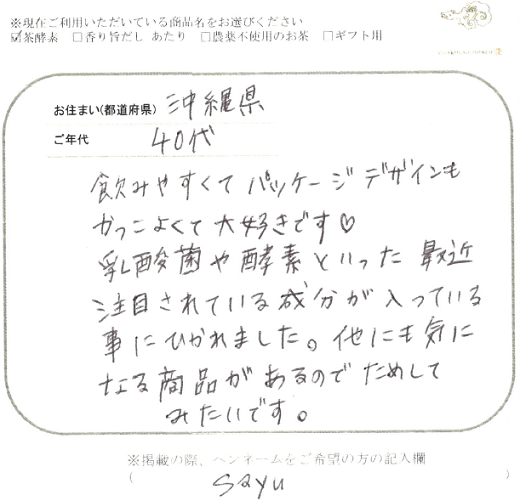 ※現在ご利用いただいている商品名をお選びください
☑茶酵素 □香り旨だし あたり □農薬不使用のお茶 □ギフト用
お住まい(都道府県) 沖縄県
ご年代 40代
飲みやすくて パッケージデザインも
かっこよくて大好きです♡
乳酸菌や酵素といった 最近
注目されている成分が入っている
事にひかれました。他にも気に
なる商品があるのでためして
みたいです。
※掲載の際、ペンネームをご希望の方の記入欄
( sayu )